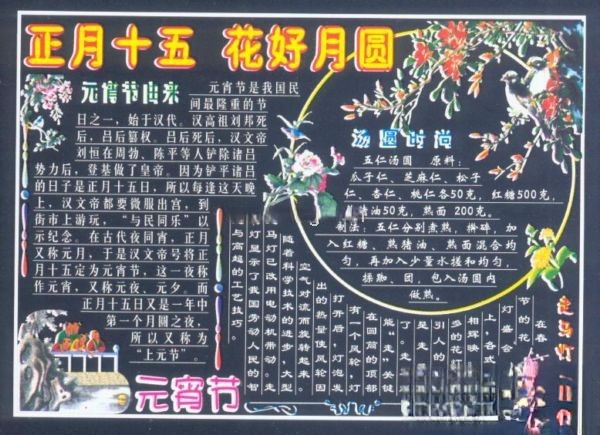 正月十五 花好月圆
元宵节由来
元宵节是我国民
间最隆重的节
日之一，始于汉代。汉高祖刘邦死
后，吕后篡权。吕后死后，汉文帝
刘恒在周勃、陈平等人铲除诸吕
势力后，登基做了皇帝。因为铲平诸吕
的日子是正月十五日，所以每逢这天晚
上，汉文帝都要微服出宫，到
街市上游玩，“与民同乐”以
示纪念。在古代夜同宵，正月
又称元月，于是汉文帝号将正
月十五定为元宵节，这一夜称
作元宵，又称元夜、元夕。而
正月十五日又是一年中
第一个月圆之夜，
所以又称为
“上元节”。
汤圆时尚
五仁汤圆 原料：
瓜子仁、芝麻仁、松子
仁、杏仁、桃仁各50克，红糖500克，
猪油50克，熟面 200克。
制法：五仁分别煮熟，擀碎，加
入红糖、熟猪油、熟面混合均
匀，再加入少量水搓和均匀，
揉拗、团，包入汤圆内
做熟。
走马灯
在春
节的花
灯盛会
上，各式
相辉映
多的花
引人的
是走
了。走
能“走”关键
在回筒的顶部
有一个风轮，灯
打开后，灯泡发
出的热量使风轮因
空气对流而旋转起来。
随着科学技术的进步，大型
马灯已改用电动机带动。走
灯显示了我国劳动人民的智
与高超的工艺技巧。
元宵节